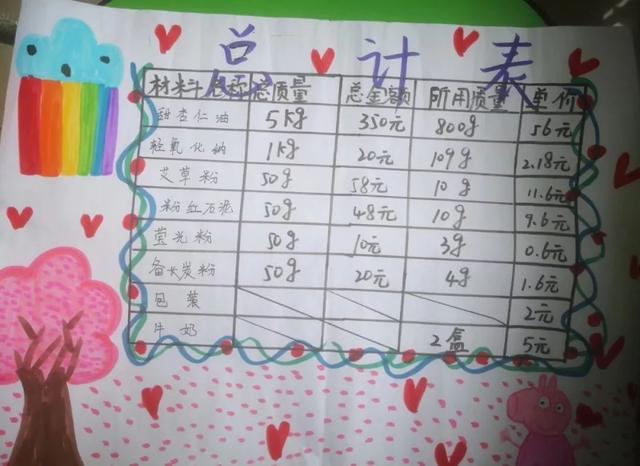 总计表
材料名称 总质量 总金额 所用质量 单价
甜杏仁油 5kg 350元 800g 56元
轻氧化钠 1kg 20元 109g 2.18元
艾草粉 50g 58元 10g 11.6元
粉红石泥 50g 48元 10g 9.6元
萤光粉 50g 10元 3g 0.6元
备长炭粉 50g 20元 4g 1.6元
包装 2元
牛奶 2盒 5元